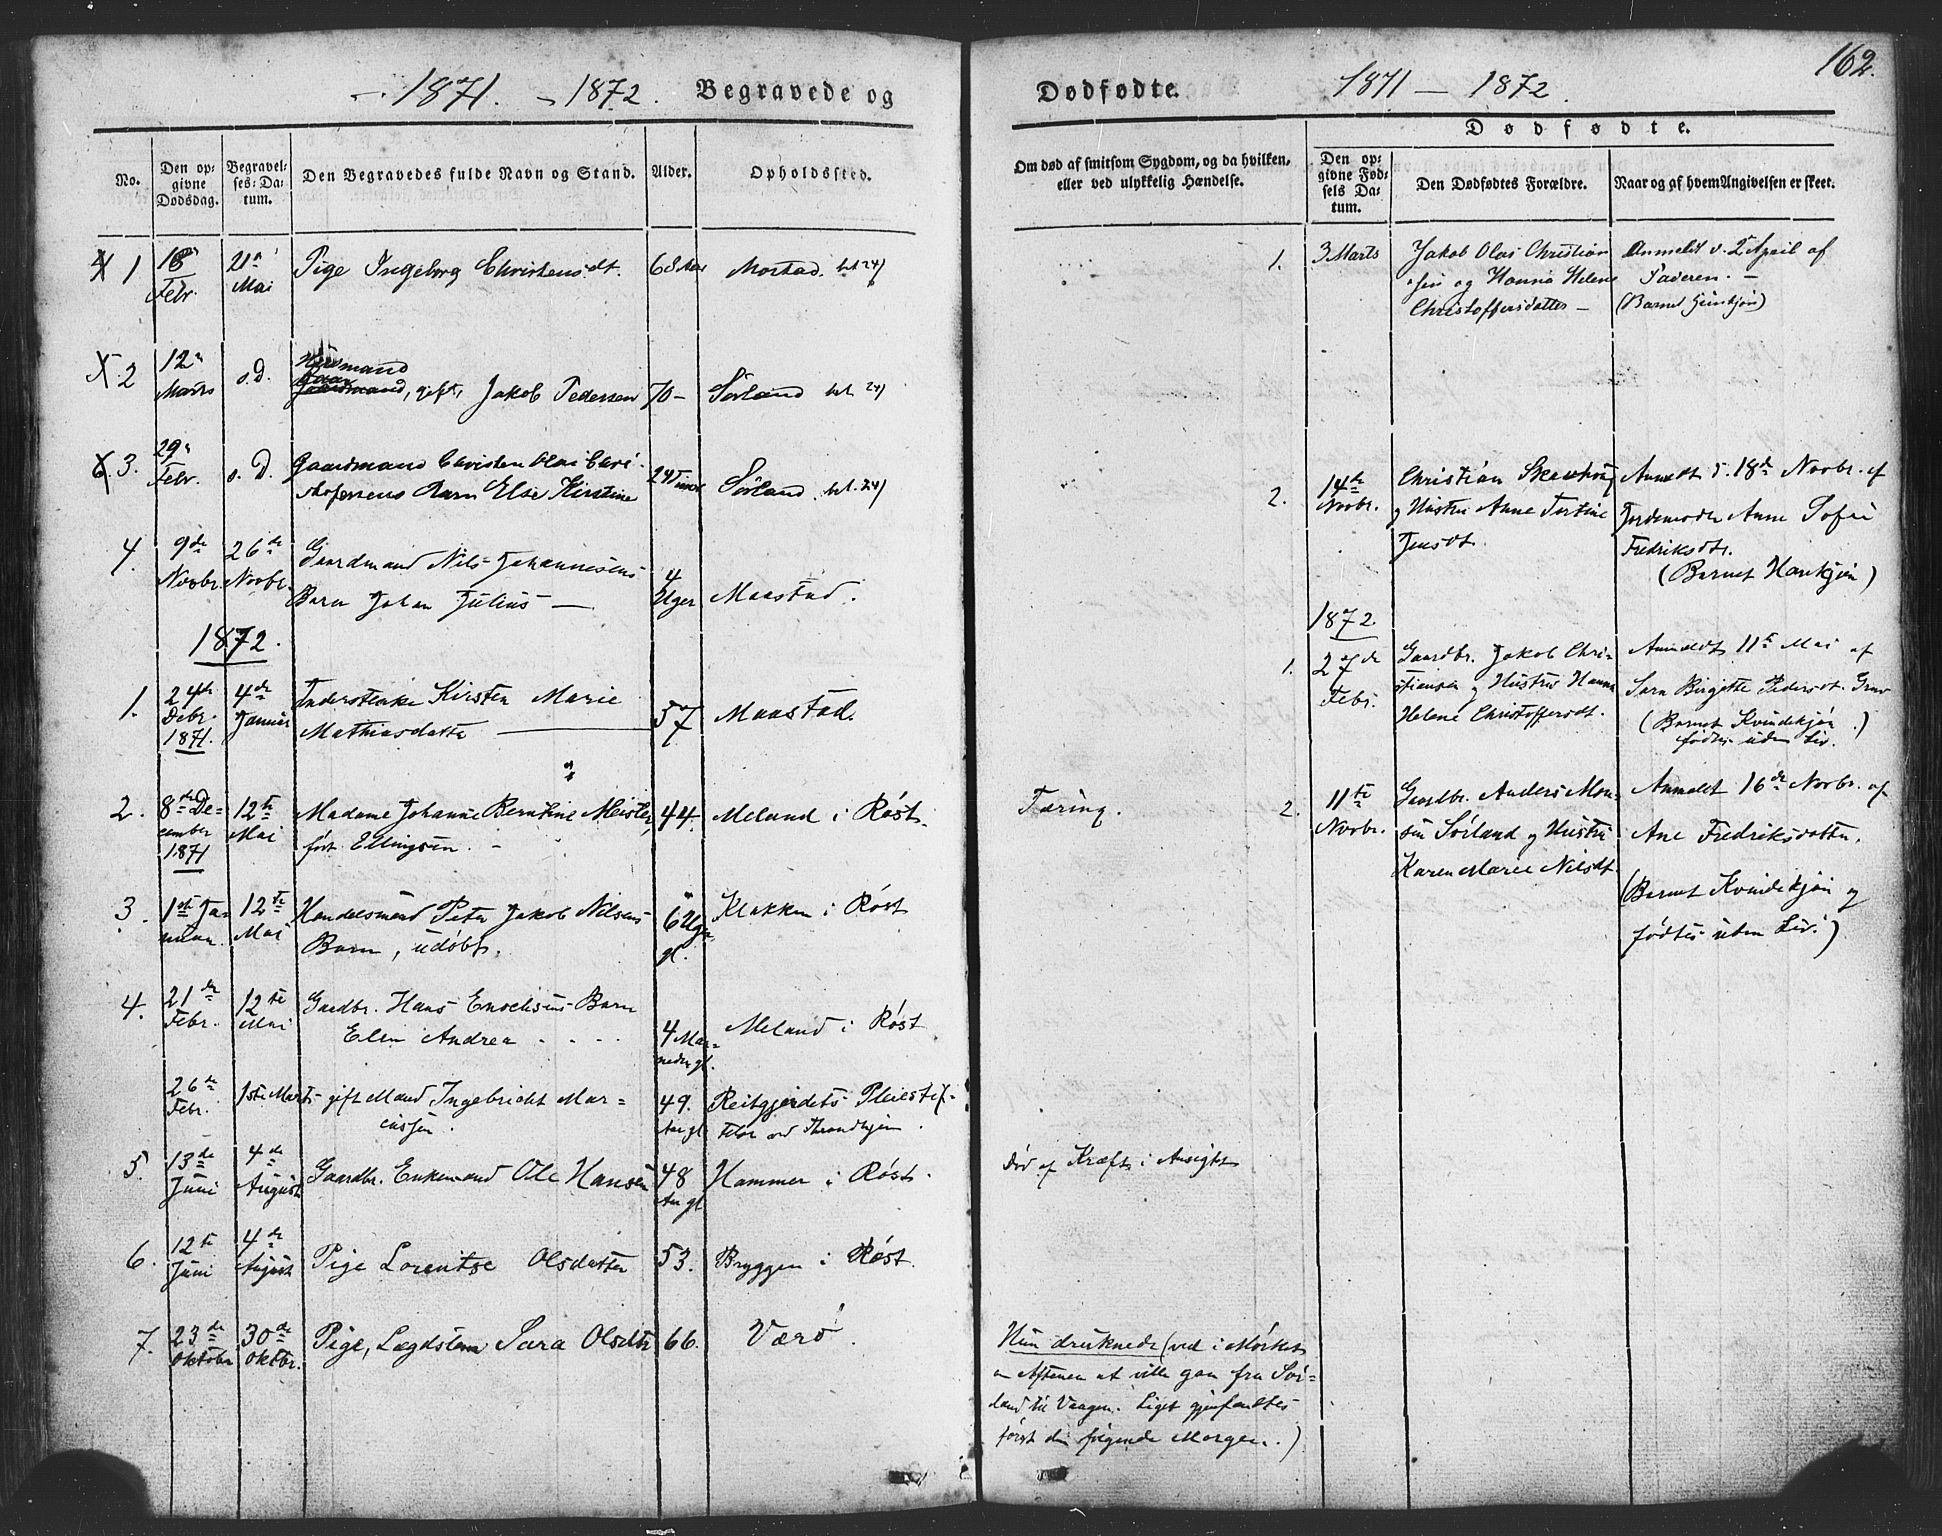 1871. - 1872. Begravede og
No.
Den opgivne Dødsdag.
Begravelses-Datum.
Den Begravedes fulde Navn og Stand.
Alder.
Opholdssted.
1 18 Febr. 21 Mai Pige Ingeborg Christensdt. 68 Mostad.
2 12 Marts s.D. Huusmand
gift, Jakob Pedersen 70 - Sørland
3. 29 Febr. s.D. Gaardmand Christen Olai Chri-
stofersens Barn Else Kirstine 24 Timer Sørland
4. 9de Novbr. 26de Novbr. Gaardmand Nils Johannesens
Barn Johan Julius — 4 Uger Maastad.
1872.
1. 24de Debr. 1871. 4de Januar Kirsten Marie
Mathiasdatter — 57 Maastad.
2. 8de December 1871 12te Mai Madame Johanne Berntine Meister, 44. Meland i Røst.
født Ellingsen. -
3. 1ste Januar. 12te Mai Handelsmand Peter Jakob Nilsens
Barn, udøbt. 6 Uger gl. Klakken i Røst
4. 21de Febr. 12te Mai Gaardbr. Hans Enochsens Barn
Elen Andrea . . . . 4 Maaneder gl. Meland i Røst
26de Febr. 1ste Marts gift Mand Ingebricht Mar=
49. Aar gl. Reitgjerdets Pleiestif-
telse ved Throndhjem.
5. 13de Juni 4de August Gaardbr. Enkemand Ole Hansen 48 Aar gl. Hammer i Røst.
6. 12te Juni 4de August Pige Lorentse Olsdatter 53. Bryggen i Røst.
7. 23de Oktober 30de Oktbr. Pige, Lægdslem Sara Olsdtr. 66. Værø.
162.
Dødfødte. 1871 - 1872.
Om død af smitsom Sygdom, og da hvilken,
eller ved ulykkelig Hændelse.
Dødfødte.
Den opgivne Fødsels Datum.
Den Dødfødtes Forældre.
Naar og af hvem Angivelsen er skeet.
1. 3 Marts Jakob Olai Christian
sen og Hanna Helene
Christoffersdatter -
Anmeldt d. 2 April af
Faderen. -
(Barnet Hunkjøn)
2. 14de Novbr. Christian
og Hustru Anne
Jensdt.
Anmeldt d. 18de Novbr. af
Jordemoder Anne Sofie
Fredriksdtr.
(Barnet Hankjøn)
1872.
1. 27de Febr. Gaardbr. Jakob Chri-
stiansen og Hustru Hanna
Helene Christoffersdt.
Anmeldt 11te Mai af
Sara Birgitte Pedersdt.
(Barnet Kvindekjøn.)
fødtes uden Liv.
Tæring.
2. 11te Novbr. Gaardbr. Anders Mon-
sen Sørland og Hustru
Karen Marie Nilsdt.
Anmeldt 16de Novbr. af
Ane Fredriksdatter.
(Barnet Kvindekjøn og
fødtes uden Liv.)
Død af Kræft i Ansigtet
Hun druknede (ved i Mørket
om Aftenen at ville gaa fra Sør=
land til Vaagen. Liget gjenfandtes
først den følgende Morgen.)